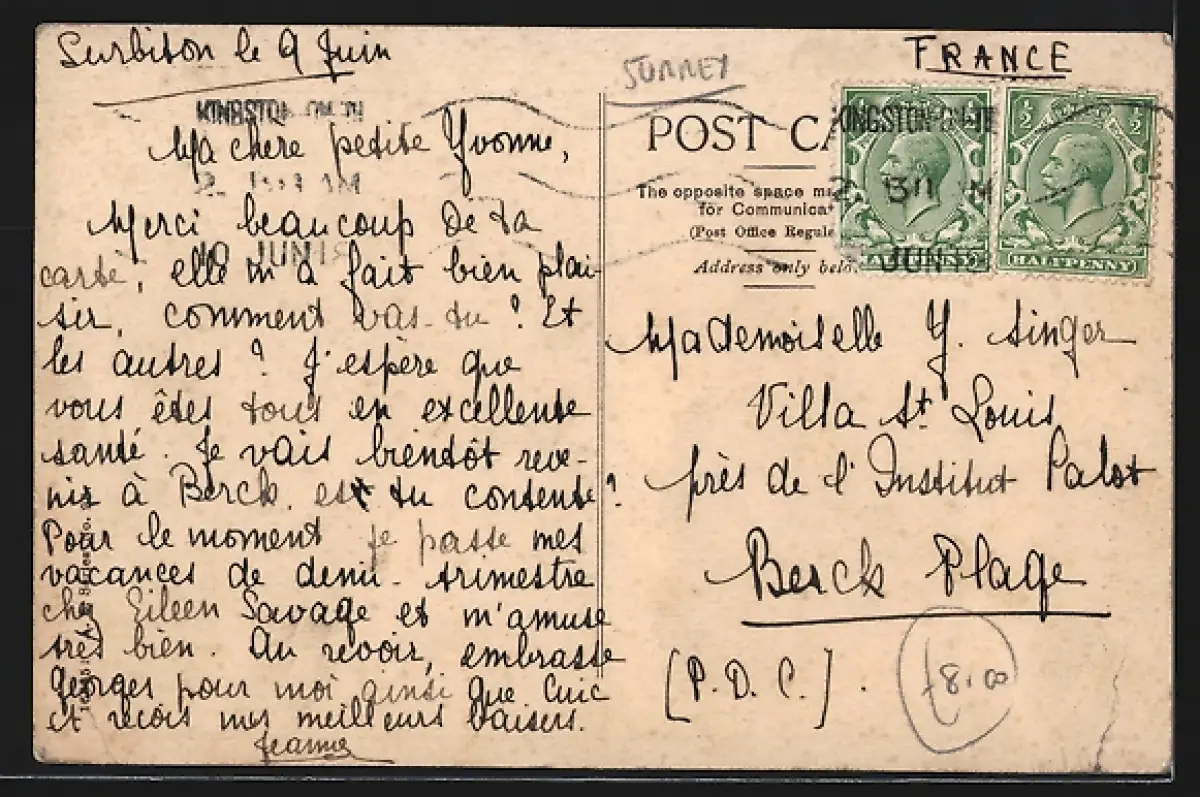 Surbiton le 9 Juin
Ma chère petite Yvonne,
Merci beaucoup de ta
carte, elle m'a fait bien plai-
sir, comment vas-tu ? Et
les autres ? J'espère que
vous êtes tous en excellente
santé. Je vais bientôt reve-
nir à Berck. es tu contente ?
Pour le moment je passe mes
vacances de demi-trimestre
chez Eileen Savage et m'amuse
très bien. Au revoir, embrasse
Georges pour moi ainsi que Cuic
et reçois mes meilleurs baisers.
Jeanne
KINGSTON ON
AM
10 JUN 1
SURREY
FRANCE
POST CA
The opposite space ma
for Communicat
(Post Office Regula
Address only belo
KINGSTON-ON-TE
JUN
½ ½
½ ½
HALFPENNY
HALFPENNY
Mademoiselle Y. Singer
Villa St Louis
près de l'Institut Palot
Berck Plage
[P. D. C.].
£8.00